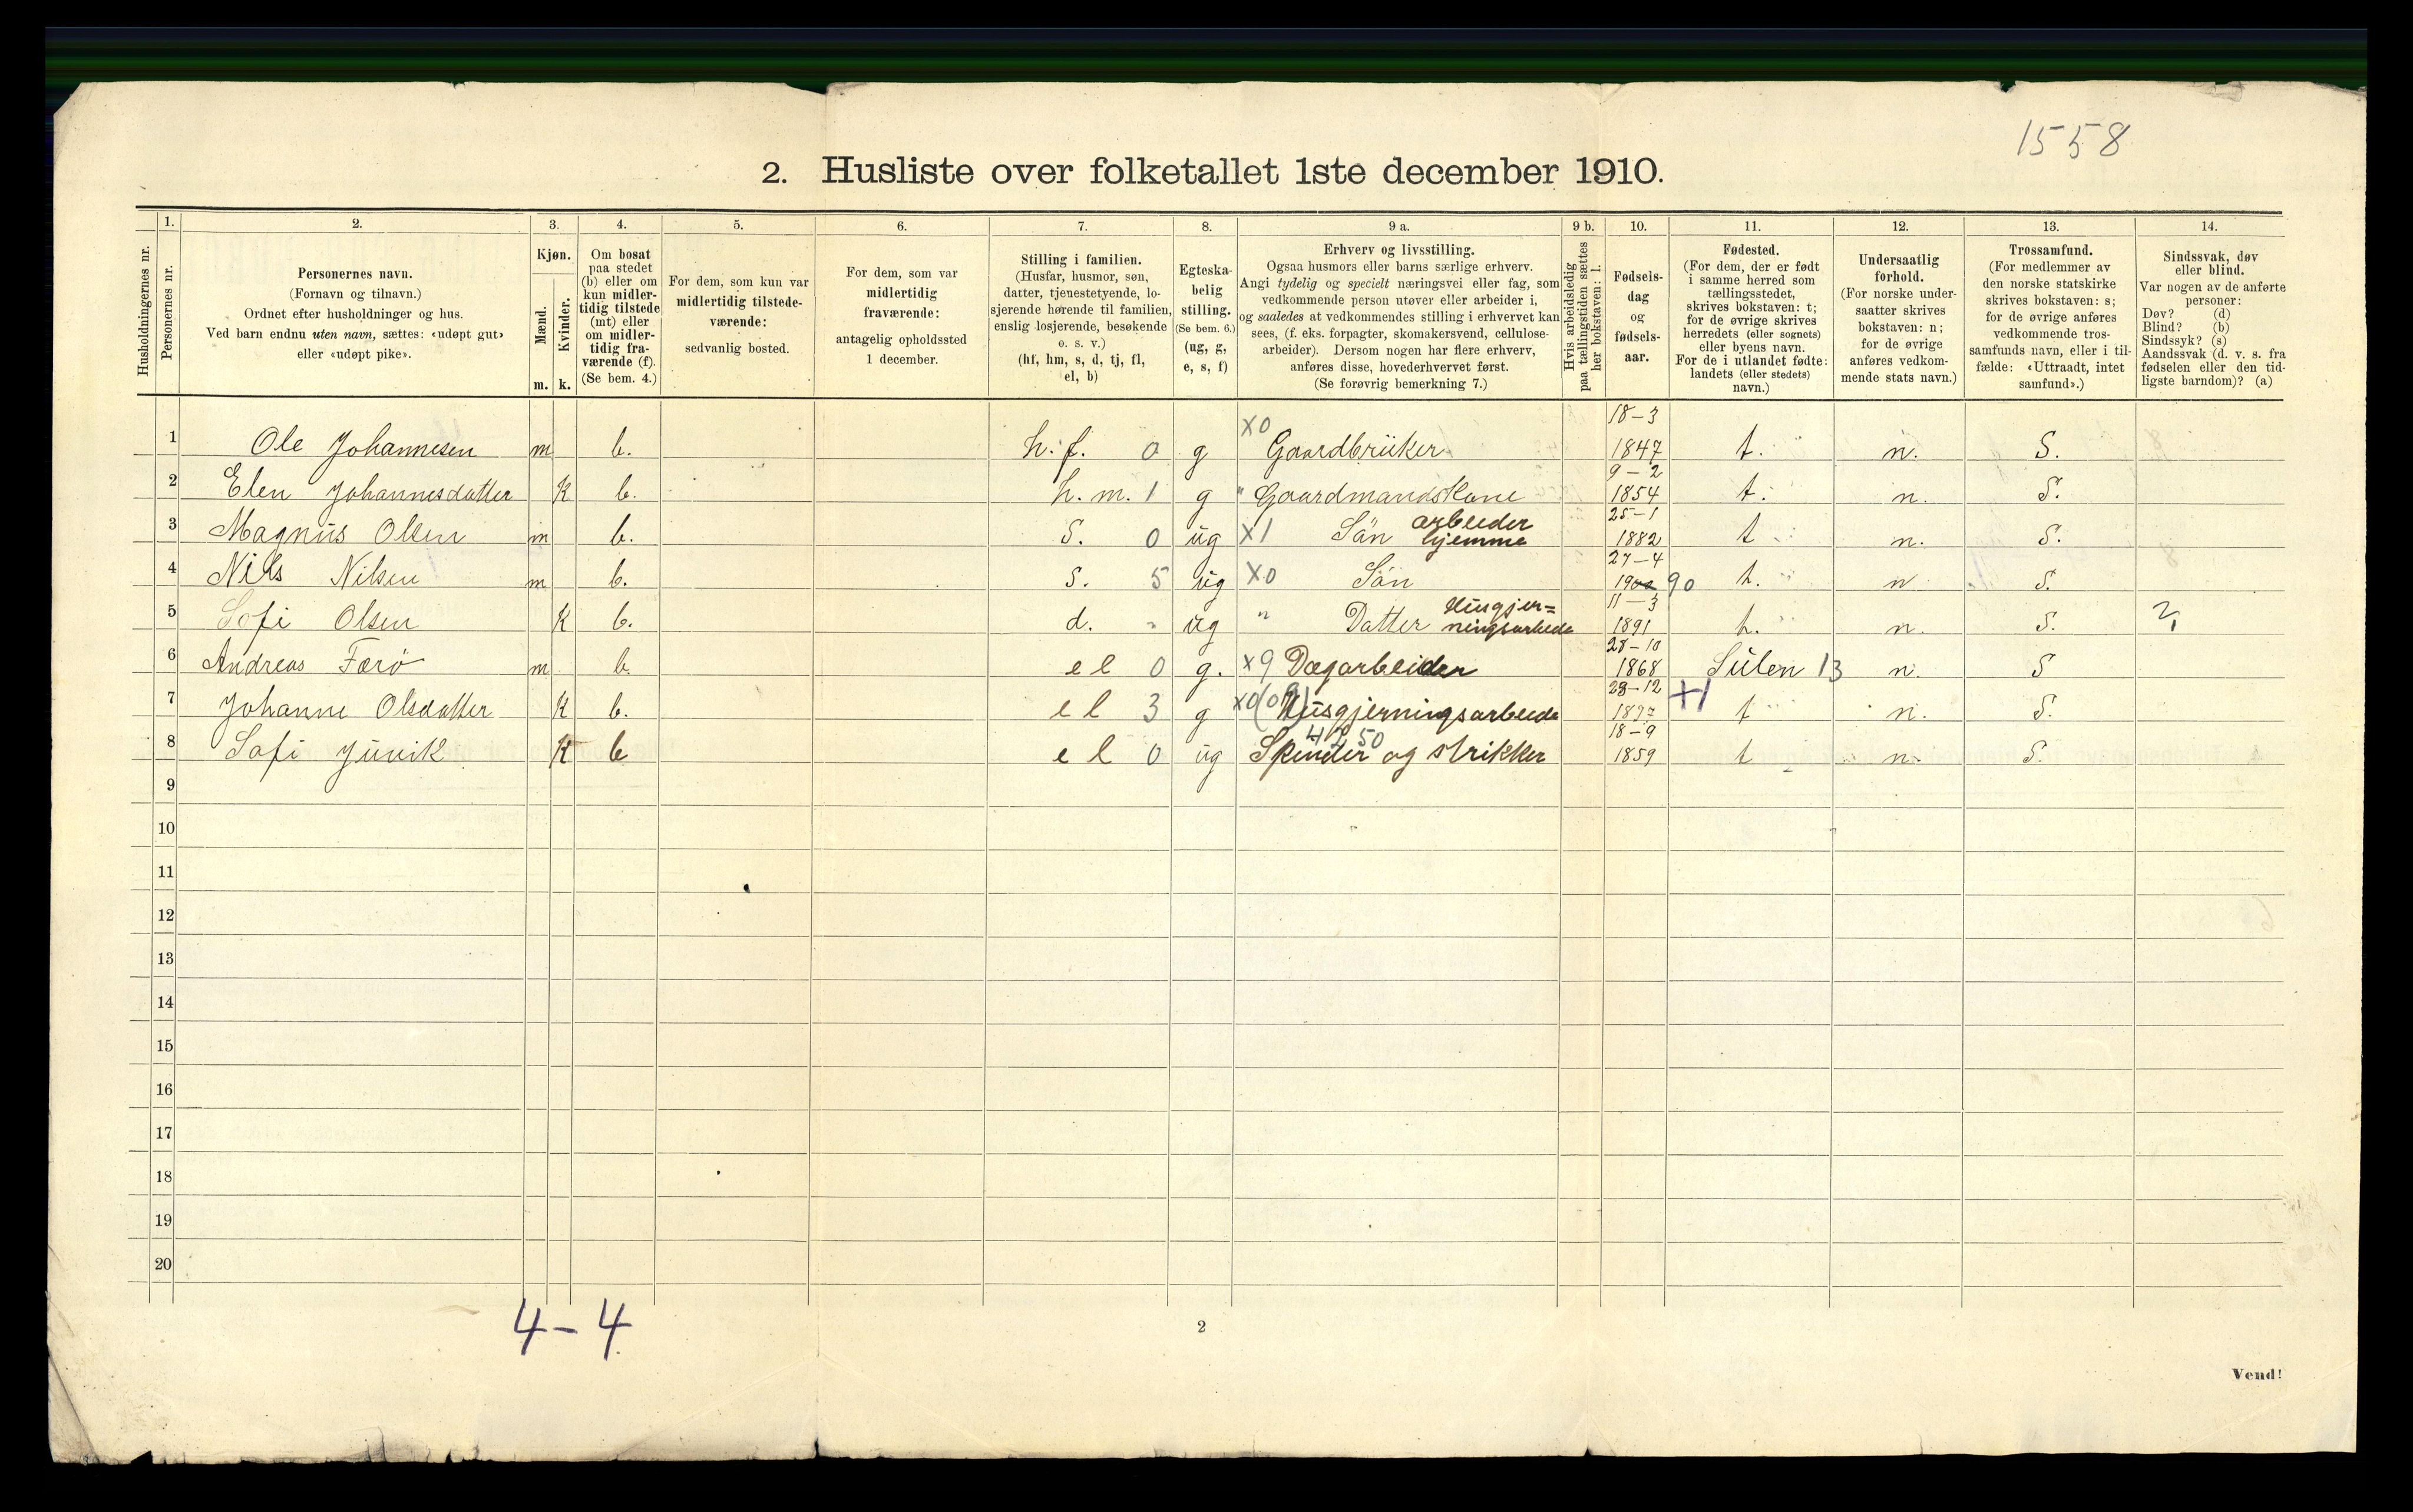 1558
2. Husliste over folketallet 1ste december 1910.
Husholdningernes nr.
1.
Personernes nr.
2.
Personernes navn.
(Fornavn og tilnavn.)
Ordnet efter husholdninger og hus.
Ved barn endnu uten navn, sættes: «udøpt gut»
eller «udøpt pike».
3.
Kjøn.
Mænd.
Kvinder.
m. k.
4.
Om bosat
paa stedet
(b) eller om
kun midler-
tidig tilstede
(mt) eller
om midler-
tidig fra-
værende (f).
(Se bem. 4.)
5.
For dem, som kun var
midlertidig tilstede-
værende:
sedvanlig bosted.
6.
For dem, som var
midlertidig
fraværende:
antagelig opholdssted
1 december.
7.
Stilling i familien.
(Husfar, husmor, søn,
datter, tjenestetyende, lo-
sjerende hørende til familien,
enslig losjerende, besøkende
o. s. v.)
(hf, hm, s, d, tj, fl,
el, b)
8.
Egteska-
belig
stilling.
(Se bem. 6.)
(ug, g,
e, s, f)
9 a.
Erhverv og livsstilling.
Ogsaa husmors eller barns særlige erhverv.
Angi tydelig og specielt næringsvei eller fag, som
vedkommende person utøver eller arbeider i,
og saaledes at vedkommendes stilling i erhvervet kan
sees, (f. eks. forpagter, skomakersvend, cellulose-
arbeider). Dersom nogen har flere erhverv,
anføres disse, hovederhvervet først.
(Se forøvrig bemerkning 7.)
9 b.
Hvis arbeidsledig
paa tællingstiden sættes
her bokstaven: l.
10.
Fødsels-
dag
og
fødsels-
aar.
11.
Fødested.
(For dem, der er født
i samme herred som
tællingsstedet,
skrives bokstaven: t;
for de øvrige skrives
herredets (eller sognets)
eller byens navn.
For de i utlandet fødte:
landets (eller stedets)
navn.)
12.
Undersaatlig
forhold.
(For norske under-
saatter skrives
bokstaven: n;
for de øvrige
anføres vedkom-
mende stats navn.)
13.
Trossamfund.
(For medlemmer av
den norske statskirke
skrives bokstaven: s;
for de øvrige anføres
vedkommende tros-
samfunds navn, eller i til-
fælde: «Uttraadt, intet
samfund».)
14.
Sindssvak, døv
eller blind.
Var nogen av de anførte
personer:
Døv? (d)
Blind? (b)
Sindssyk? (s)
Aandssvak (d. v. s. fra
fødselen eller den tid-
ligste barndom)? (a)
1 Ole Johannesen m b. h.f. 0 g X0 Gaardbrüker 18-3 1847 t. n. S.
2 Elen Johannesdatter K b. h.m. 1 g " Gaardmandskone 9-2 1854 t. n. S.
3 Magnus Olsen m b. S. 0 ug X1 Sän arbeider hjemme 25-1 1882 t n. S.
4 Nils Nilsen m b. S. 5 ug X0 Sän 27-4 1900 90 t. n S.
5 Sofi Olsen K b. d. " ug " Datter Husgjer= ningsarbeide 11-3 1891 t. n. S.
6 Andreas Færö m b. el 0 g. X9 Dagarbeider 28-10 1868 Sülen 13 n. S
7 Johanne Olsdatter K b. el 3 g X0(09) Husgjerningsarbeide 28-12 +1 t n. S.
8 Sofi Juvik K b el 0 ug Spinder og strikker 18-9 1859 t n. S.
9
10
11
12
13
14
15
16
17
18
19
20
4-4
2
Vend!